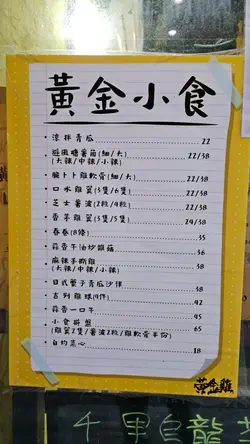 黃金小食
• 涼拌青瓜 22
• 避風塘薯茄(細/大) 22/38
(大辣/中辣/小辣)
• 脆卜卜雞軟骨(細/大) 22/38
• 口水雞翼(3隻/6隻) 22/38
• 芝士薯波(2粒/4粒) 22/38
• 香茅雞翼(3隻/5隻) 24/38
• 春卷(8條) 35
• 蒜香牛油炒雞菇 36
• 麻辣手撕雞 38
(大辣/中辣/小辣)
• 日式蟹子青瓜沙律 38
• 吉列雞球(9件) 42
• 蒜香一口牛 45
• 小食拼盤 65
(雞翼2隻/薯波2粒/雞軟骨半份)
• 白灼菜心 18
黃金雞
千里白龍